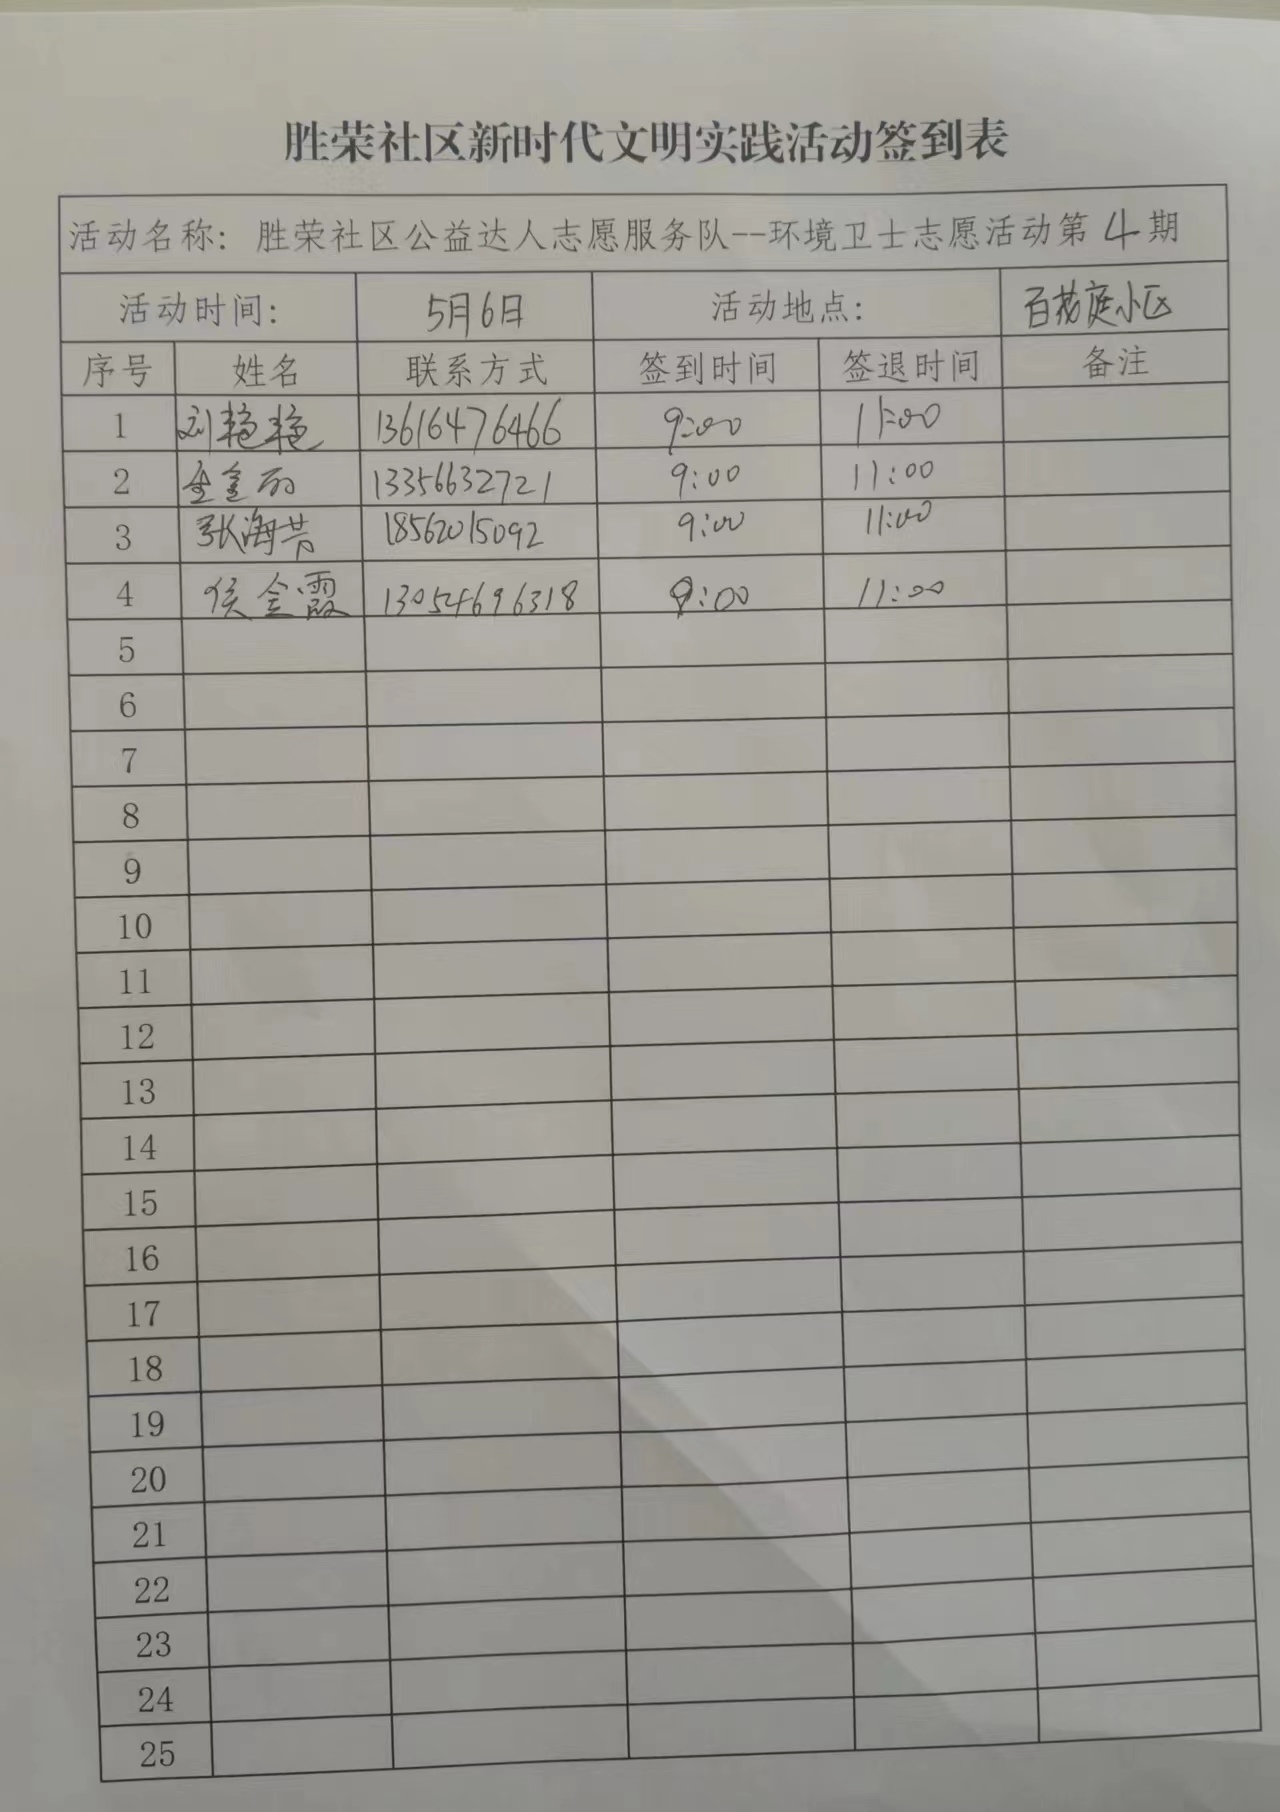 胜荣社区新时代文明实践活动签到表
活动名称：胜荣社区公益达人志愿服务队--环境卫士志愿活动第4期
活动时间： 5月6日 活动地点： 百花庭小区
序号 姓名 联系方式 签到时间 签退时间 备注
1 刘艳艳 13616476466 9:00 11:00
2 13356632721 9:00 11:00
3 张海芳 18562015092 9:00 11:00
4 侯金霞 13054696318 9:00 11:00
5
6
7
8
9
10
11
12
13
14
15
16
17
18
19
20
21
22
23
24
25